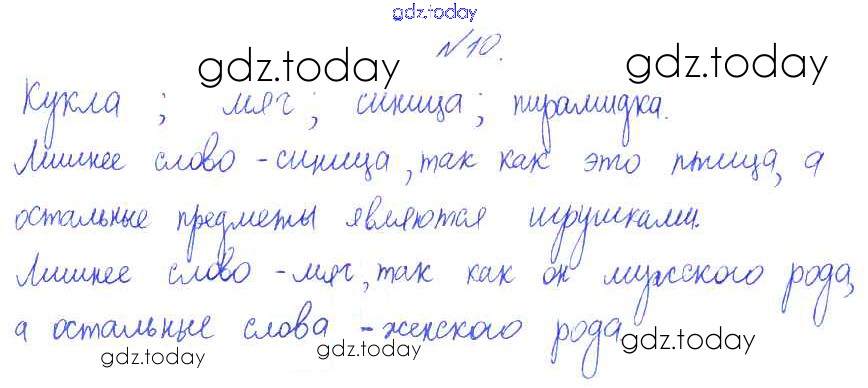 gdz.today
№10.
gdz.today gdz.today
Кукла ; мяч ; синица ; пирамидка.
Лишнее слово - синица, так как это птица, а
остальные предметы являются игрушками.
Лишнее слово - мяч, так как он мужского рода,
а остальные слова - женского рода
gdz.today gdz.today gdz.today